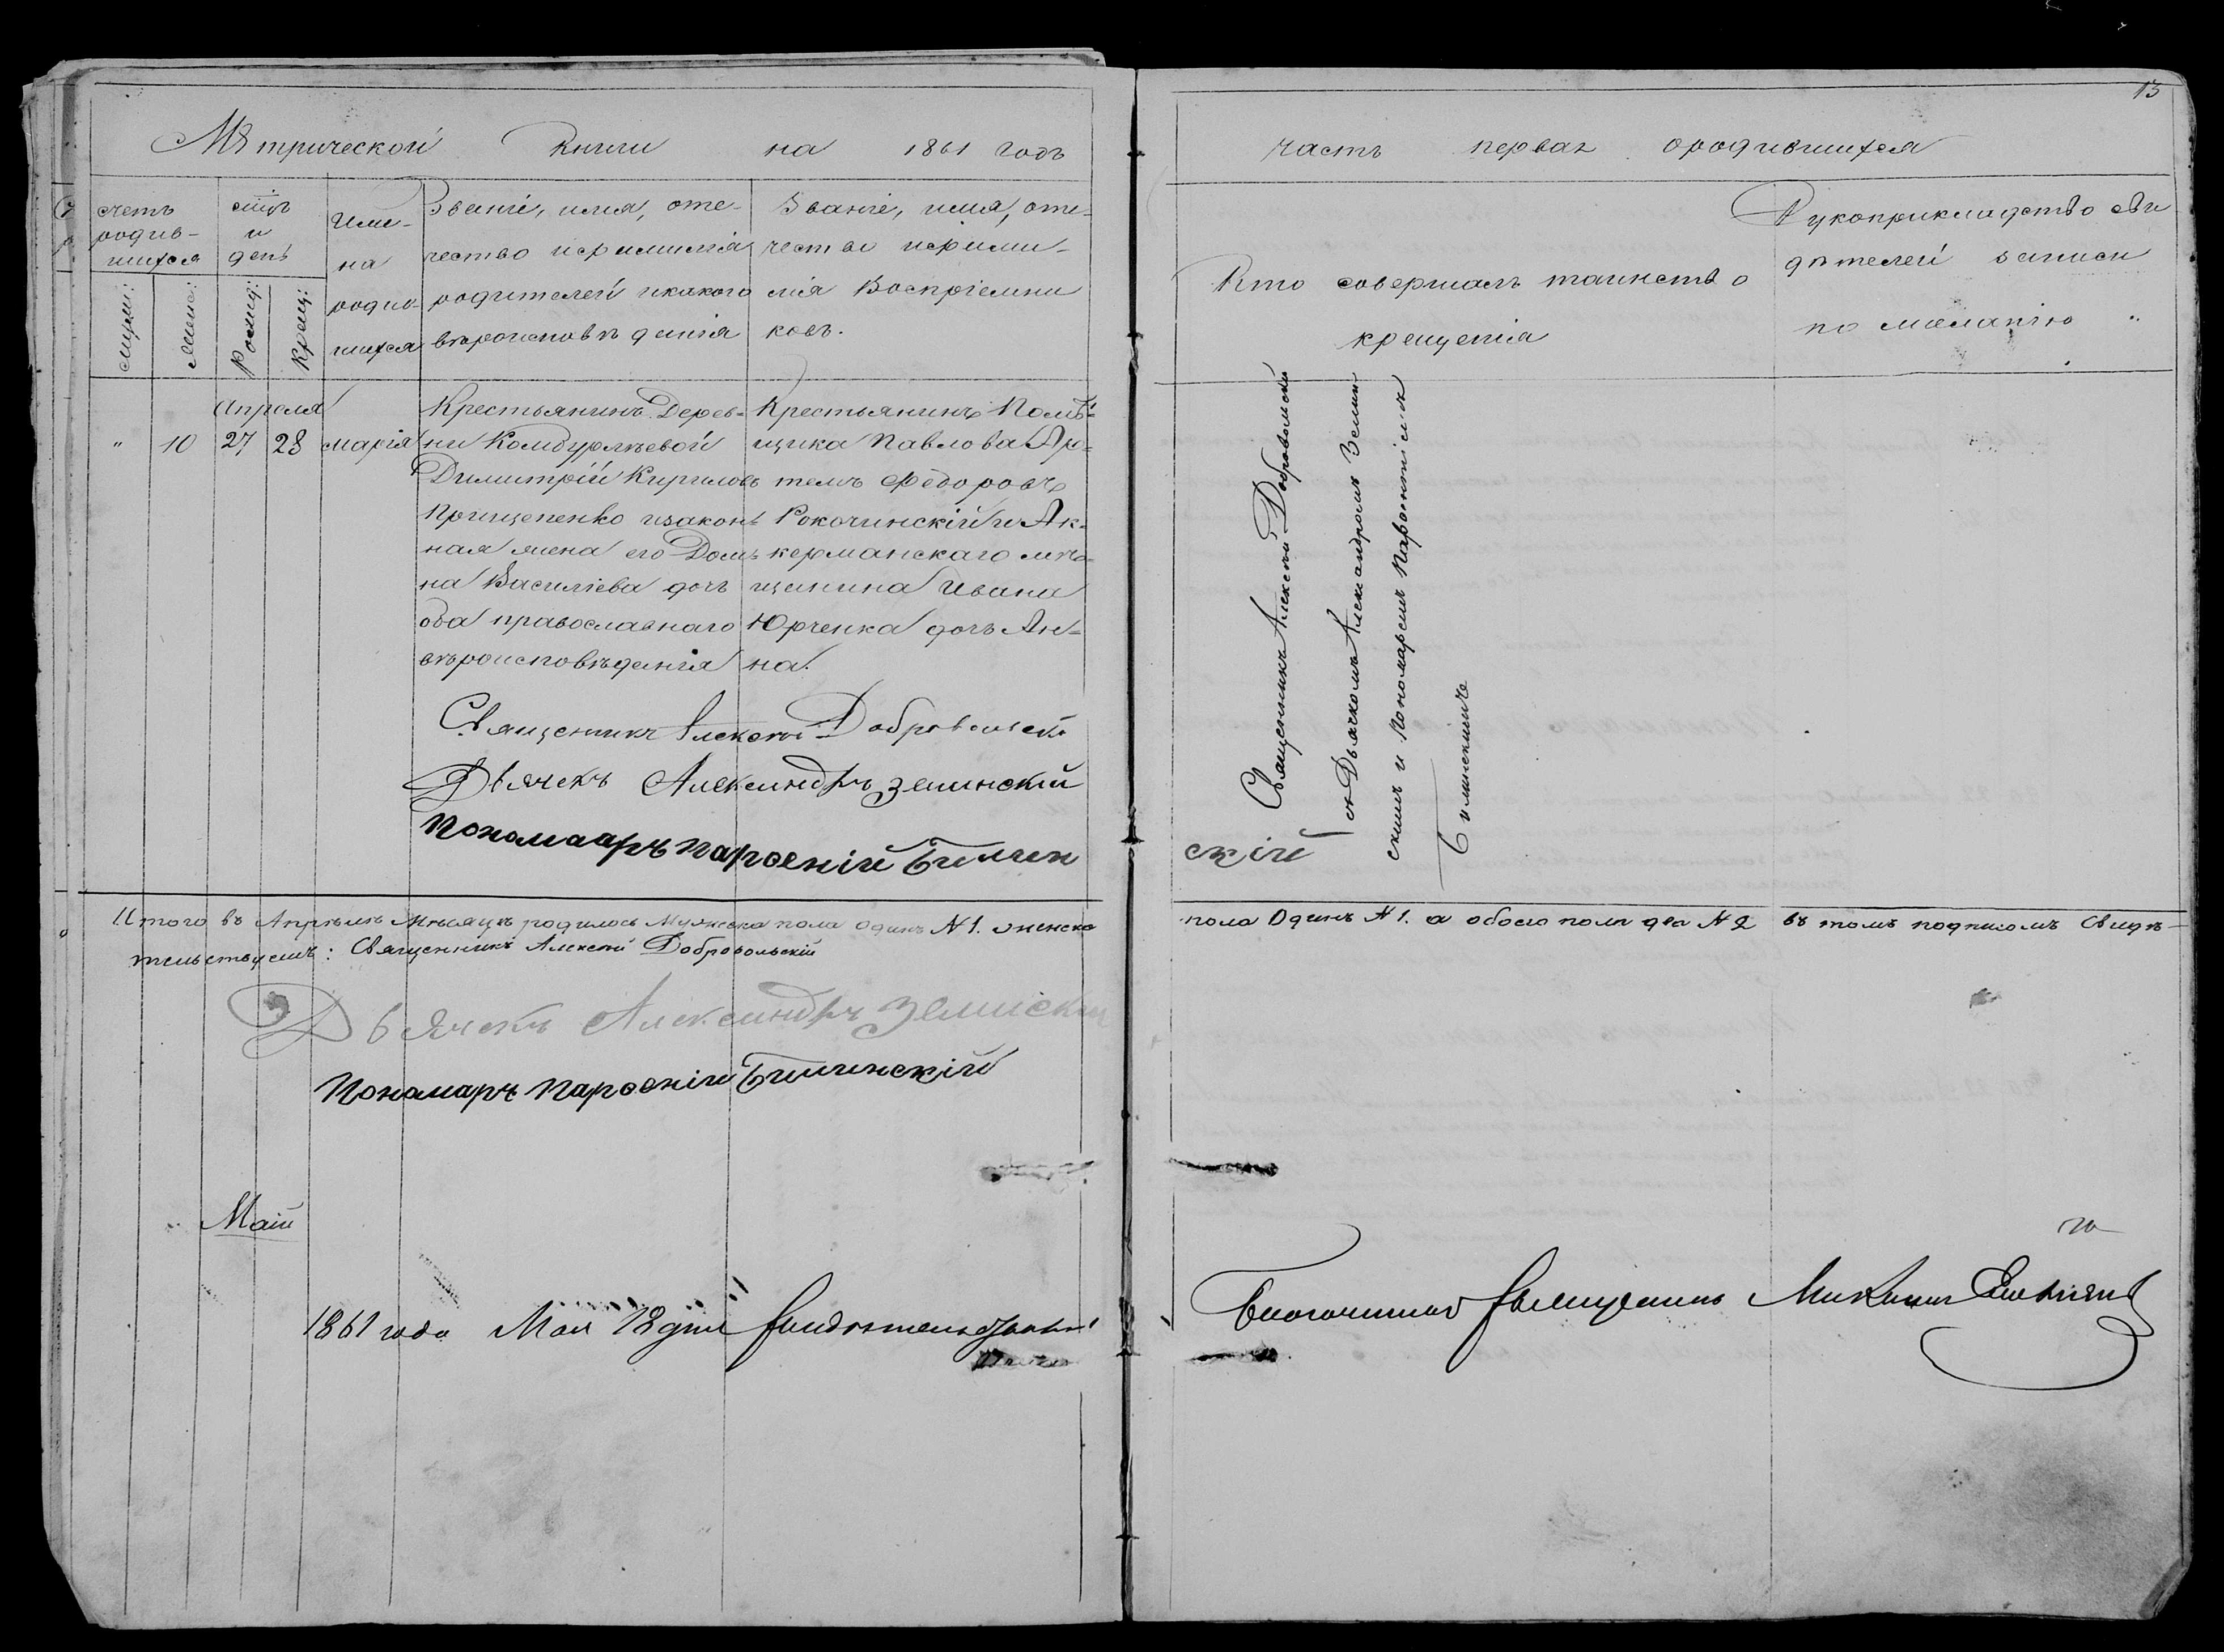 13
Мѣтрической Книги на 1861 годъ
часть первая ородившихся
счетъ родив-
шихся
мцъ
и
день
Име-
на
родив-
шихся
Званіе, имя, оте-
чество ифамилія
родителей икакого
вѣроисповѣденія
Званіе, имя, оте-
чество ифами-
лія Воспріемни
ковъ.
Кто совершалъ таинство
крещенія
Рукоприкладство сви
дѣтелей записи
по желанію
муж:
жен:
Рожд:
Крещ:
Апреля
" 10 27 28 марія
Крестьянинъ Дерев-
ни Комбурлѣевой
Димитрій Кириловъ
Прищепенко изакон-
ная жена его Дом-
на Василіева дочь
оба православнаго
вѣроисповѣденія
Крестьянинъ Помѣ-
щика Павлова Ар-
темъ Федоровъ
Рокочинскій и Ак-
керманскаго мѣ-
щанина Ивана
Юрченка дочь Ан-
на.
Священникъ Алексѣй Добровольскій
съ Дьячкомъ Александромъ Земин
скимъ и Пономаремъ Парфеніемъ
Билинскимъ
Священникъ Алексѣй Добровольскі
Дьячекъ Александръ Земинскій
Пономааръ Парфеній Билин
скій
Итого въ Апрѣлѣ Мѣсяцѣ родилось Мужеска пола одинъ №1. женска
пола Одинъ №1. а обоего пола два №2 въ томъ подписомъ Свидѣ-
тельствуемъ: Священникъ Алексѣй Добровольскій
Дьячекъ Александръ Земинскій
Пономаръ Парфеній Билинскій
Маій
1861 года Мая 18 дня Свидѣтельствовалъ
Благочинный Священникъ